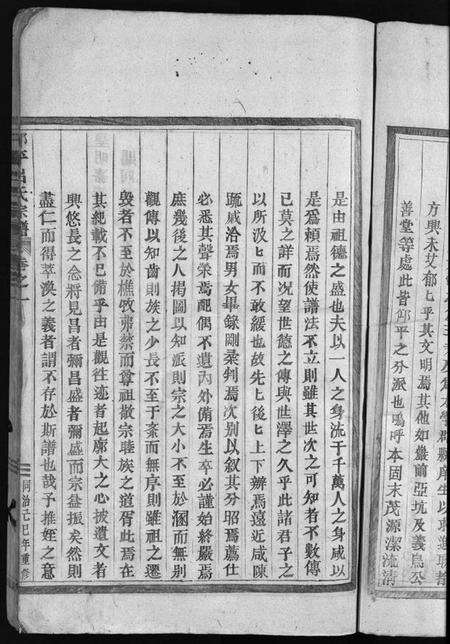 善堂等處此皆鄮平之分派也嗚呼本固末茂源潔流清
是由祖德之盛也夫以一人之身流于千萬人之身咸以
是為賴焉然使譜法不立則雖其世次之可知者不數傳
已莫之詳而况望世德之傳與世澤之久乎此諸君子之
以所汲匕而不敢緩也故先匕後匕上下辨焉遠近咸陳
疏戚洽焉男女畢錄剛柔判焉次別以叙其分昭焉薦仕
必悉其聲榮焉配偶不遺內外備焉生卒必謹始終嚴焉
庶幾後之人揭圖以知派則宗之大小不至於溷而無別
觀傳以知齒則族之少長不至于紊而無序則雖祖之遷
毀者不至於樵牧禁而尊祖散宗睦族之道胥此焉在
其紀載不已備乎由是觀徃迹者起廓大之心披遺文者
興悠長之念將見昌者彌昌盛者彌盛而宗益振矣然則
盡仁而得萃渙之義者謂不存於斯譜也哉予推姪之意
平呂氏宗譜
卷之一
同治己巳年重修